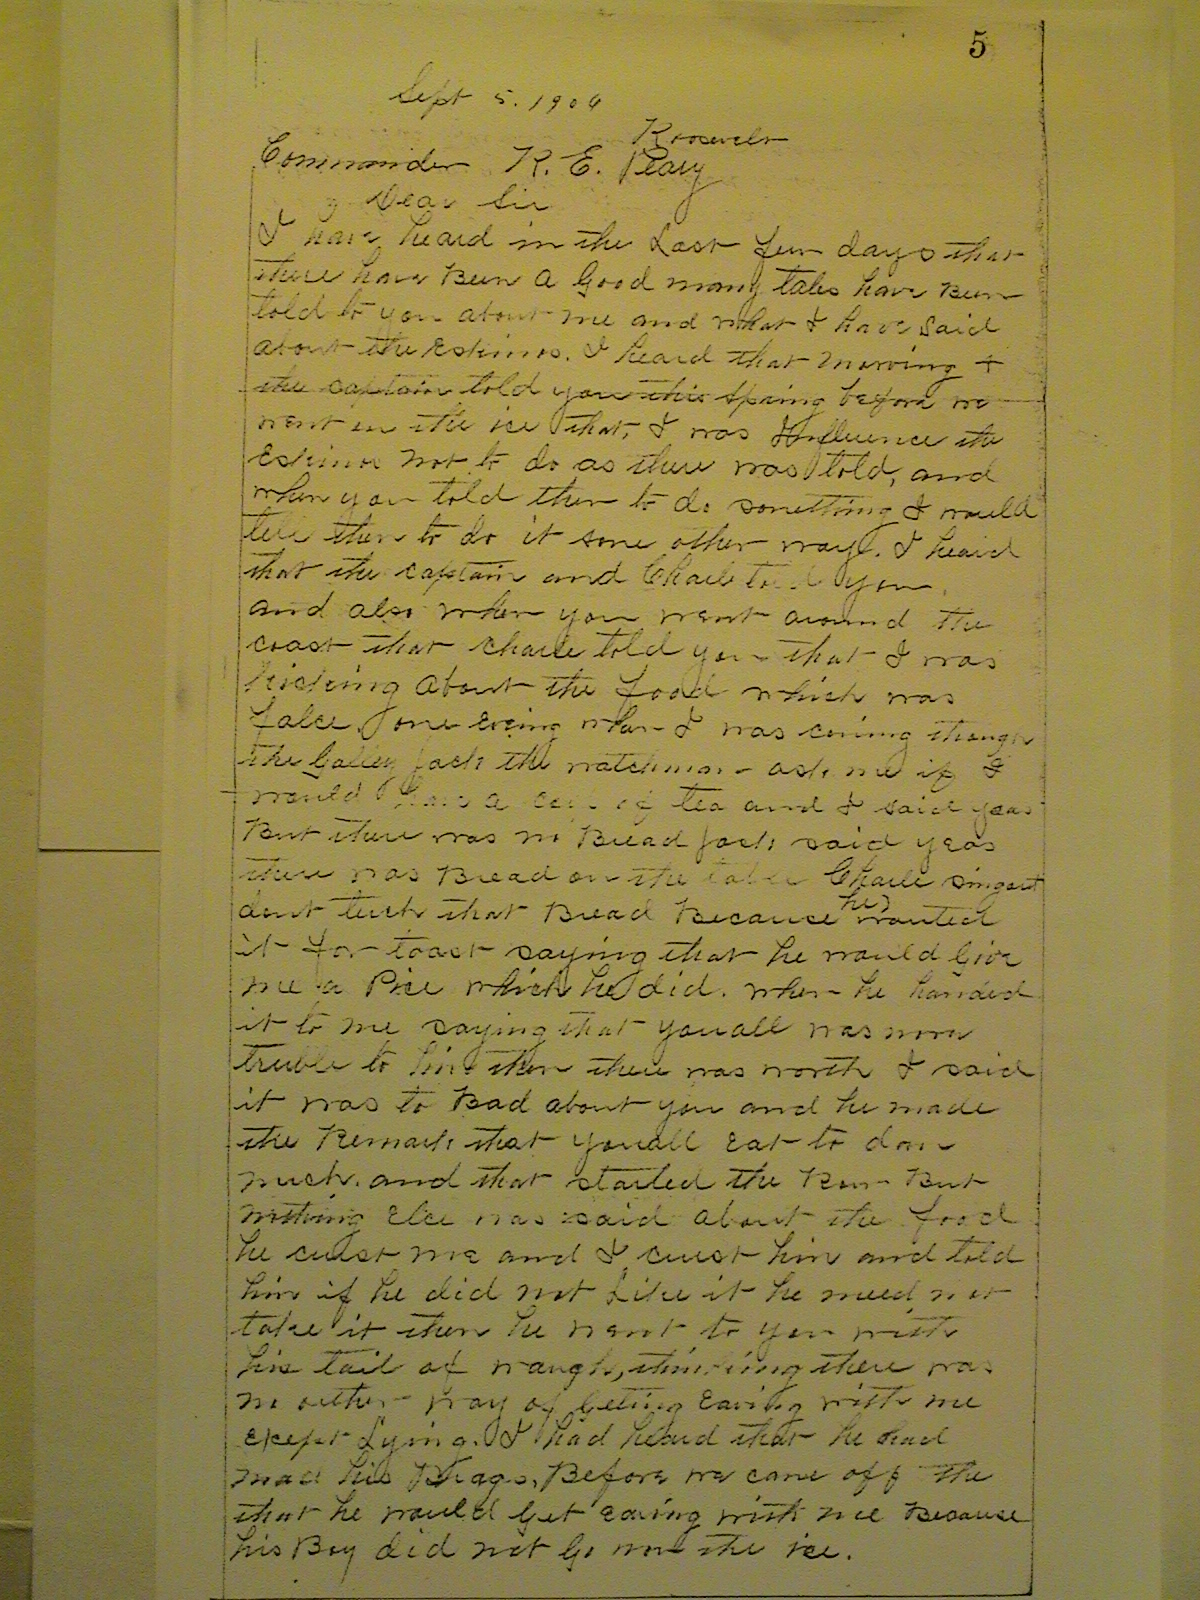 5
Sept 5. 1906
Roosevelt
Commander R. E. Peary
Dear Sir
I have heard in the Last few days that
there have Been a Good many tales have Been
told to you about me and what I have Said
about the Eskimos. I heard that morning +
the captain told you this Spring before we
went in the ice that, I was Influence the
Eskimos not to do as there was told, and
when you told then to do something I would
tell then to do it some other way. I heard
that the captain and Charle told you.
and also when you went around the
coast that charle told you that I was
kicking about the food which was
falce. one Eveing whan I was coming though
the Galley Jack the watchman ask me if I
would have a cup of tea and I said yeas
But there was no Bread Jack said yeas
there was Bread on the table Charle
dont tuch that Bread Because he wanted
it for toast saying that he would Give
me a Pice which he did. when he handed
it to me saying that youall was more
truble to him then there was worth I said
it was to Bad about you and he made
the Remark that youall Eat to dam
much. and that started the Row But
nothing Elce was said about the food
he cust me and I cust him and told
him if he did not Like it he need not
take it then he went to you with
his tail of waugh, thinking there was
no outher way of Getting Eaving with me
Exept Lying. I had heard that he had
mad his Brags, Before we came off the
that he would Get eaving with me Because
his Boy did not Go on the ice.